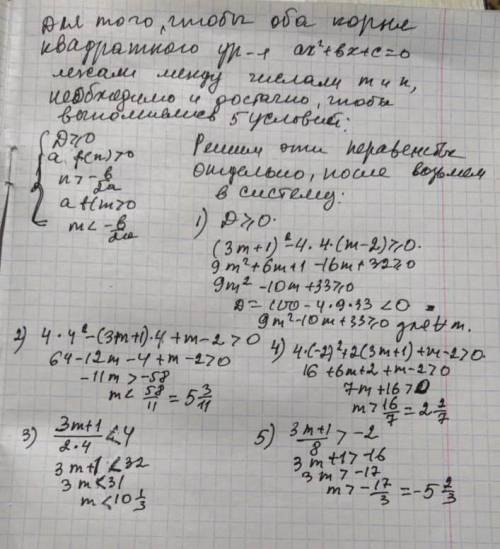 Для того, чтобы оба корне
квадратного ур-я ax²+bx+c=0
лежали между числами m и n,
необходимо и достачно, чтобы
выполнялись 5 условий:
D≥0
a·f(n)>0
n>-b/2a
a f(m)>0
m<-b/2a
Решим эти неравенства
отдельно, после возьмем
в систему:
1) D≥0.
(3m+1)²-4·4·(m-2)≥0.
9m²+6m+1-16m+32≥0
9m²-10m+33≥0
D=100-4·9·33<0
9m²-10m+33≥0 для ∀ m.
2) 4·4²-(3m+1)·4+m-2>0
64-12m-4+m-2≥0
-11m>-58
m<58/11=5 3/11
3) 3m+1/2·4<4
3m+1<32
3m<31
m<10 1/3
4) 4·(-2)²+2(3m+1)+m-2>0
16+6m+2+m-2>0
7m+16>0
m>16/7=2 2/7
5) 3m+1/8>-2
3m+1>-16
3m>-17
m>-17/3=-5 2/3